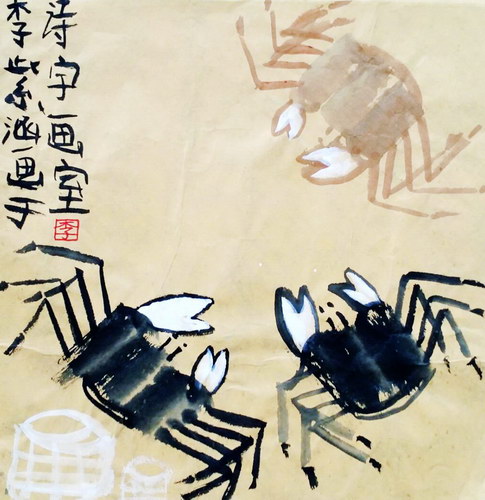 李紫涵画于
诗宇画室
李